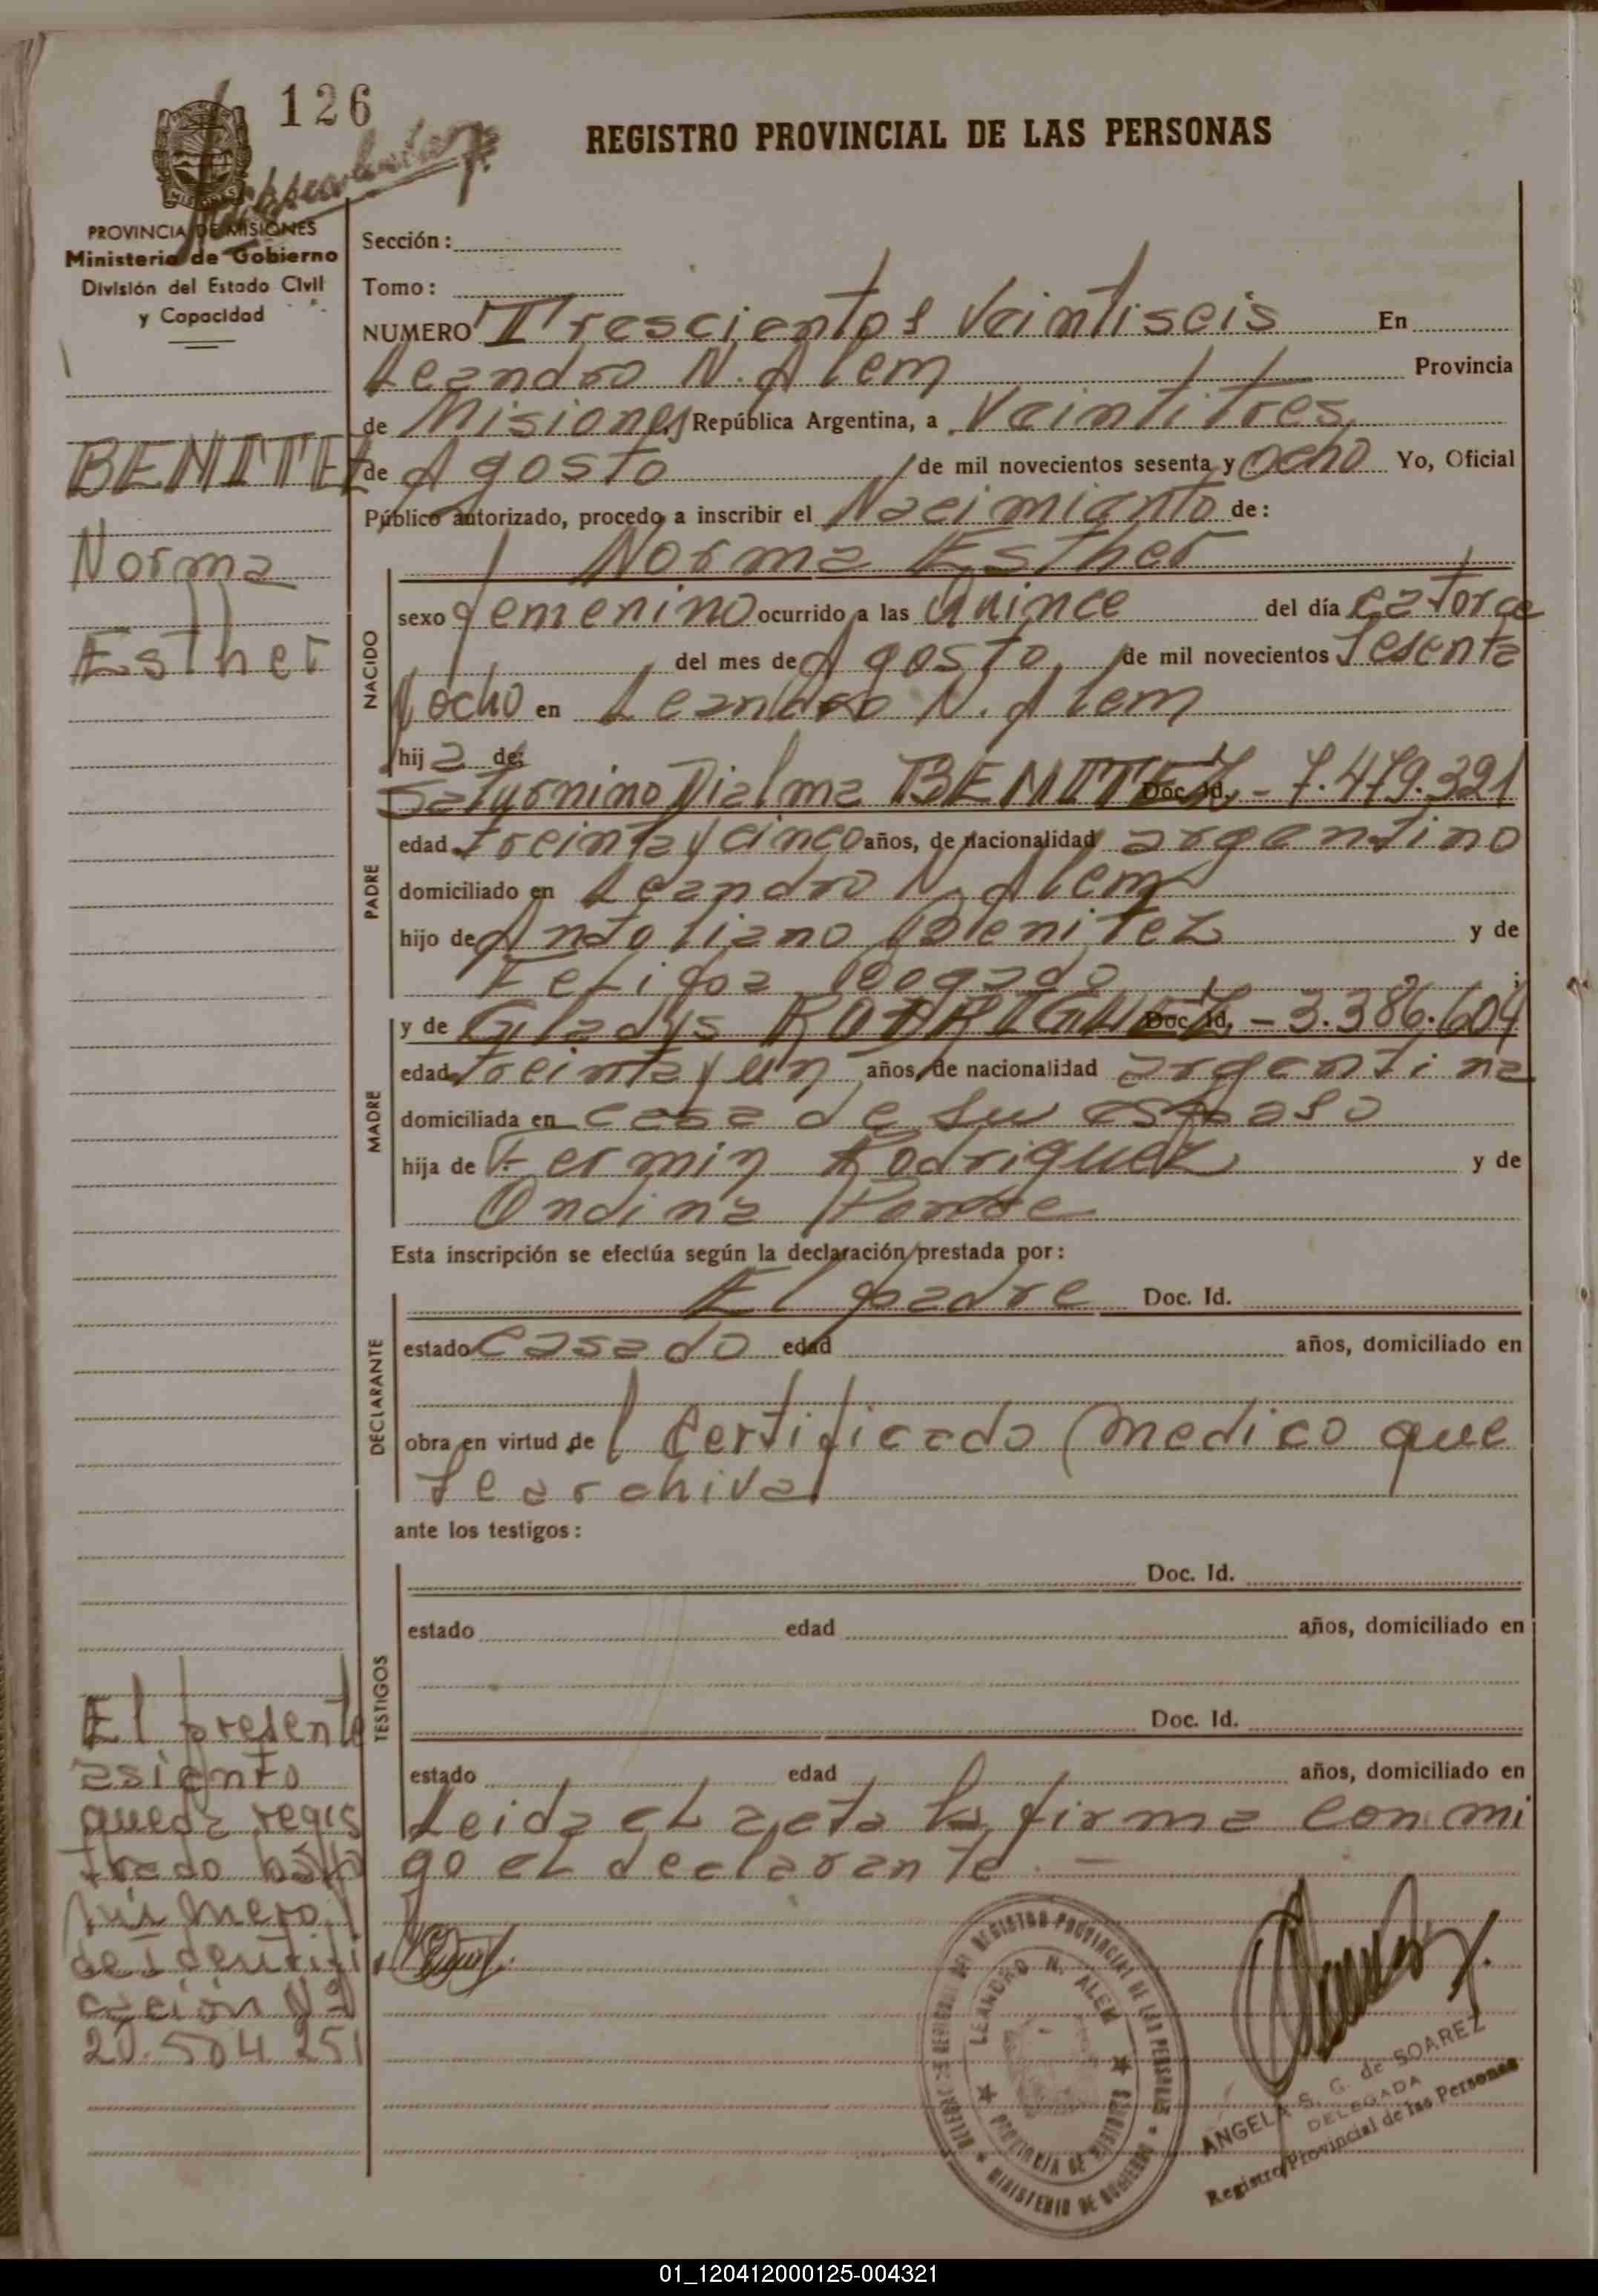 126
REGISTRO PROVINCIAL DE LAS PERSONAS
PROVINCIA DE MISIONES
Ministerio de Gobierno
División del Estado Civil
y Capacidad
BENITEZ
Norma
Esther
Sección:
Tomo:
NUMERO Trescientos Veintiseis En
Leandro N. Alem Provincia
de Misiones República Argentina, a Veintitres
de Agosto de mil novecientos sesenta y ocho Yo, Oficial
Público autorizado, procedo a inscribir el Nacimiento de:
Norma Esther
NACIDO
sexo femenino ocurrido a las Quince del día catorce
del mes de Agosto de mil novecientos Sesenta
y ocho en Leandro N. Alem
hija de:
PADRE
Saturnino Dialma BENITEZ Doc. Id. - 7.479.321
edad treinta y cinco años, de nacionalidad argentino
domiciliado en Leandro N. Alem
hijo de Antoliano Benitez y de
Bogado
MADRE
y de Gladys RODRIGUEZ Doc. Id. - 3.386.604
edad treinta y un años, de nacionalidad argentina
domiciliada en casa de su esposo
hija de Fermin Rodriguez y de
Ondina
Esta inscripción se efectúa según la declaración prestada por:
DECLARANTE
El padre Doc. Id.
estado casado edad años, domiciliado en
obra en virtud de l Certificado medico que
se archiva
ante los testigos:
TESTIGOS
Doc. Id.
estado edad años, domiciliado en
Doc. Id.
estado edad años, domiciliado en
Leida el acta la firma con mi
go el declarante. -
El presente
asiento
queda regis
trado bajo
número
de identifi
cación Nº
20.504 251
REGISTRO PROVINCIAL DE LAS PERSONAS
LEANDRO N. ALEM
PROVINCIA DE MISIONES
MINISTERIO DE GOBIERNO
ANGELA S. G. de SOAREZ
DELEGADA
Registro Provincial de las Personas
01_120412000125-004321